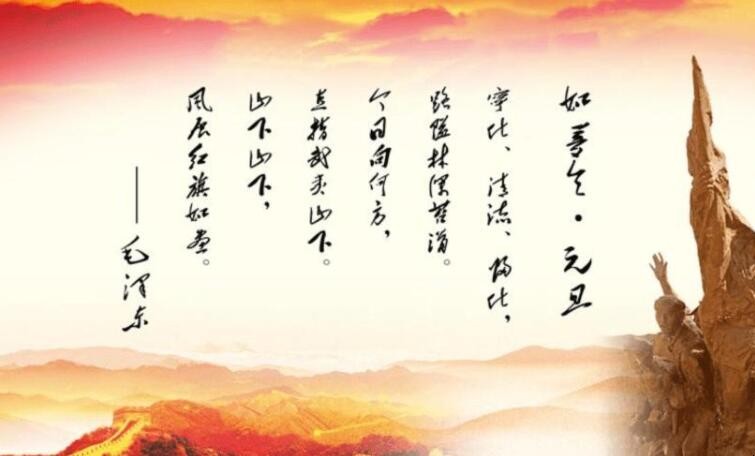 如梦令·元旦
宁化、清流、归化，
路隘林深苔滑。
今日向何方，
直指武夷山下。
山下山下，
风展红旗如画。
——毛泽东